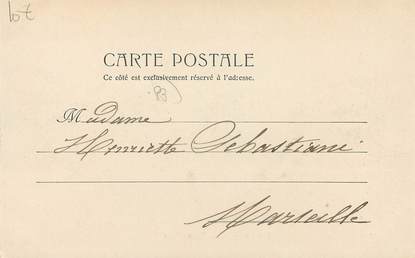 lot
CARTE POSTALE
Ce côté est exclusivement réservé à l'adresse.
83)
Madame
Henriette Sebastiani
Marseille